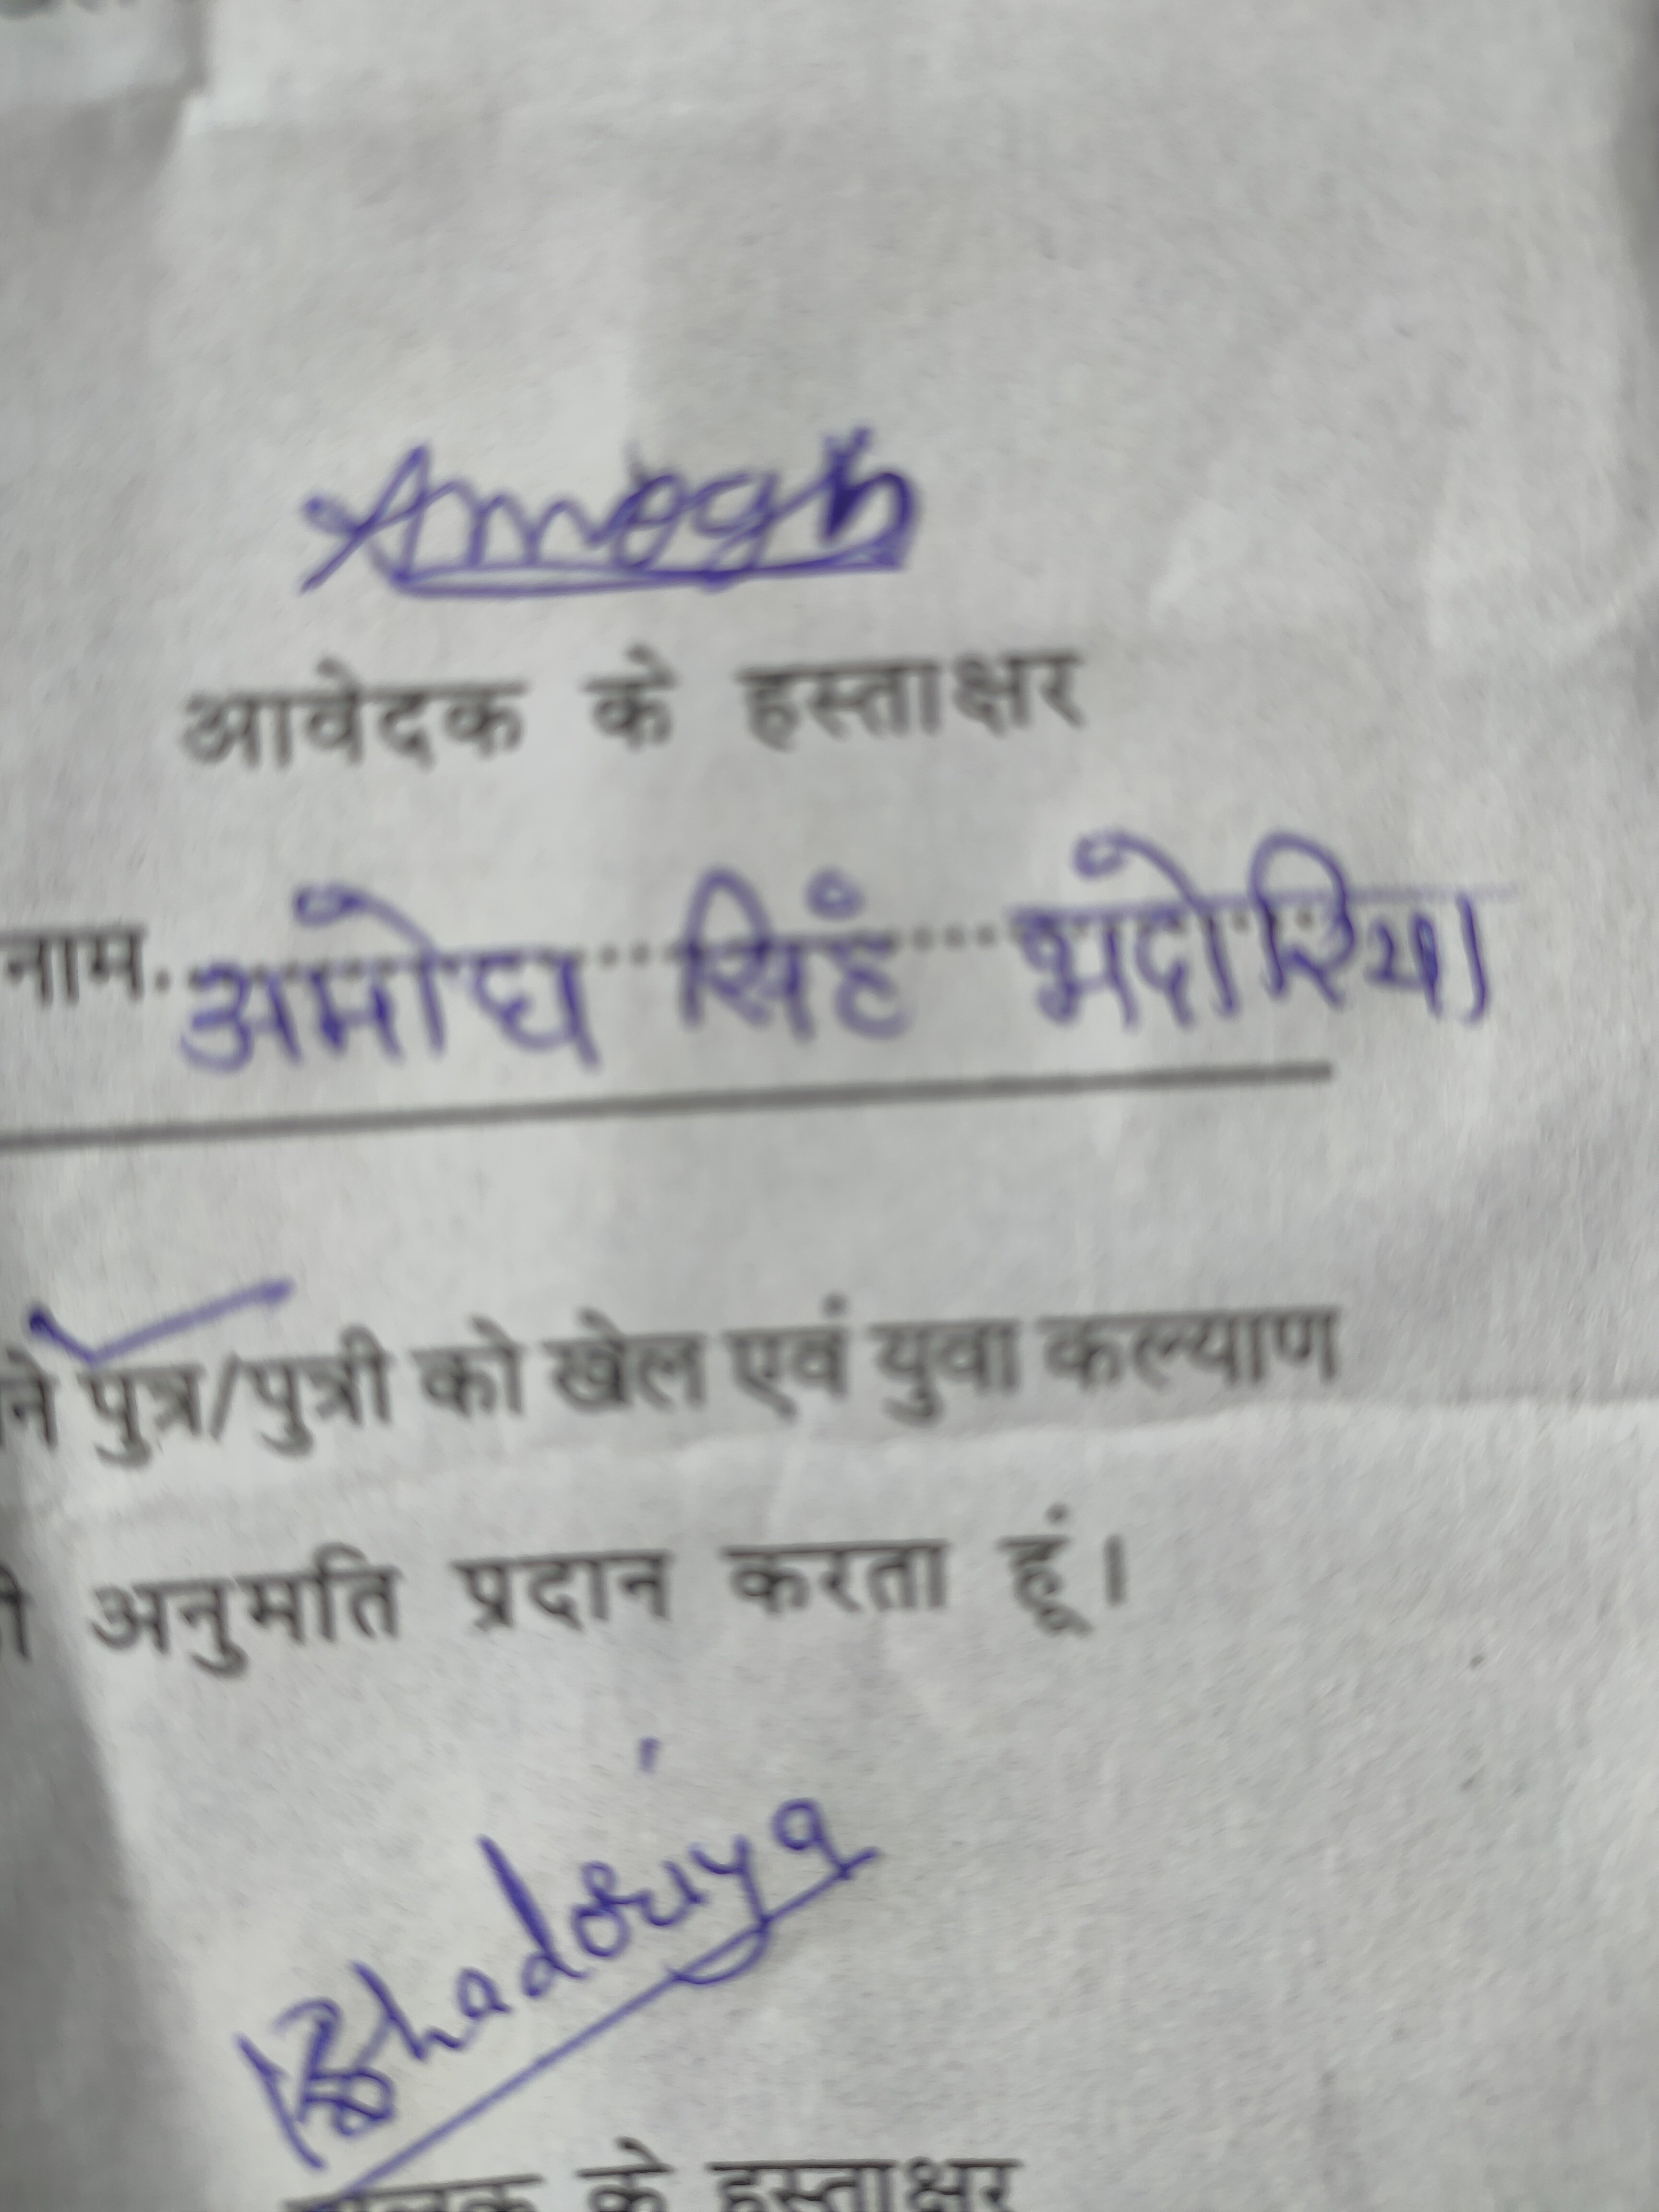 Amogh
आवेदक के हस्ताक्षर
नाम. अमोघ सिंह भदोरिया
ने पुत्र/पुत्री को खेल एवं युवा कल्याण
अनुमति प्रदान करता हूं।
Bhadoriya
के हस्ताक्षर